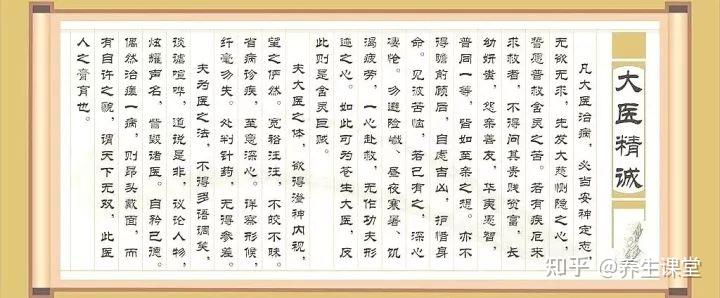 大医精诚
凡大医治病，必当安神定志，
无欲无求，先发大慈恻隐之心，
誓愿普救含灵之苦。若有疾厄来
求救者，不得问其贵贱贫富，长
幼妍蚩，怨亲善友，华夷愚智，
普同一等，皆如至亲之想。亦不
得瞻前顾后，自虑吉凶，护惜身
命。见彼苦恼，若己有之，深心
凄怆。勿避险巇、昼夜寒暑、饥
渴疲劳，一心赴救，无作功夫形
迹之心。如此可为苍生大医，反
此则是含灵巨贼。
夫大医之体，欲得澄神内视，
望之俨然。宽裕汪汪，不皎不昧。
省病诊疾，至意深心。详察形候，
纤毫勿失。处判针药，无得参差。
夫为医之法，不得多语调笑，
谈谑喧哗，道说是非，议论人物，
炫耀声名，訾毁诸医。自矜己德。
偶然治瘥一病，则昂头戴面，而
有自许之貌，谓天下无双，此医
人之膏肓也。
知乎 @养生课堂